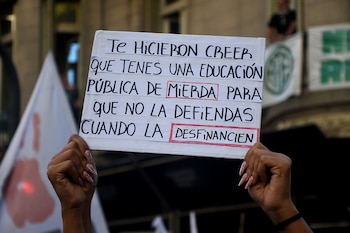 Te HiCiERON CREER,
QUE TENES UNA EDUCACIÓN
PÚBLICA DE MiERDA PARA
QUE NO LA DEFiENDAS
CUANDO LA DESFiNANCIEN